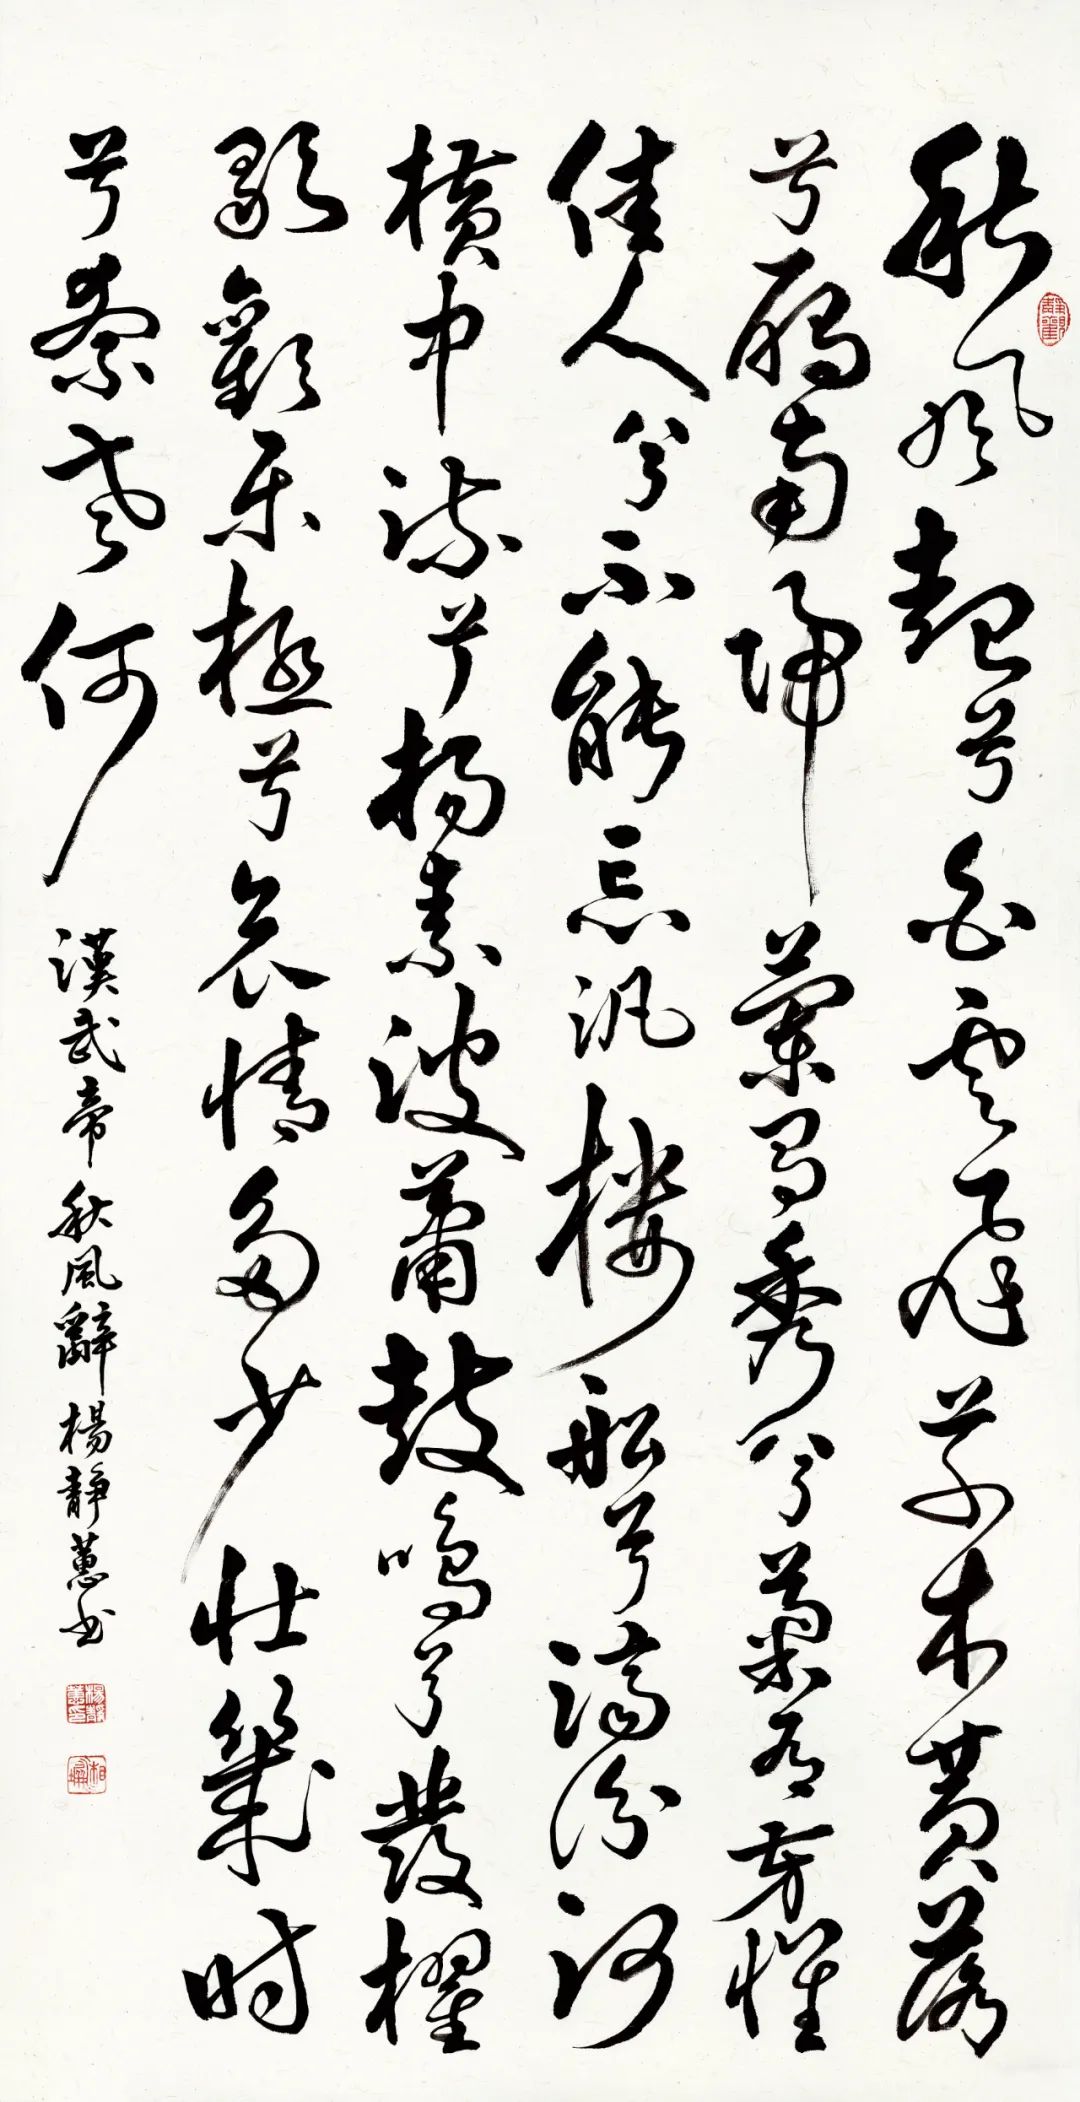 秋風起兮白雲飛草木黃落
兮雁南歸蘭有秀兮菊有芳懷
佳人兮不能忘汎樓船兮濟汾河
橫中流兮揚素波簫鼓鳴兮發櫂
歌歡樂極兮哀情多少壯幾時
兮奈老何
漢武帝秋風辭楊靜蕙书